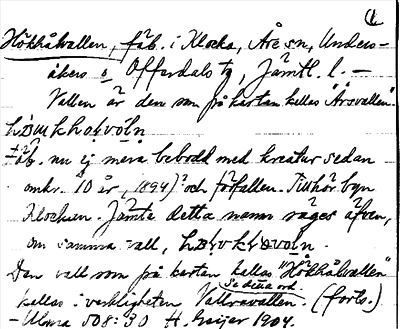 (1
Hökhålvallen, fäb. i Klocka, Åre sn, Unders-
åkers o Offerdals tg, Jämtl. l. —
Vallen är den som på kartan kallas "Årsvallen".
fäb. nu ej mera bebodd med kreatur sedan
omkr. 10 år (1894) och förfallen. Tillhör byn
Klocken. Jämte detta namn säges äfven,
om samma vall,
Den vall som på kartan kallas "Hökhålvallen"
Se detta ord.
kallas i verkligheten Vallravallen. (forts.)
— Ulma 508:30 H. Geijer 1904.